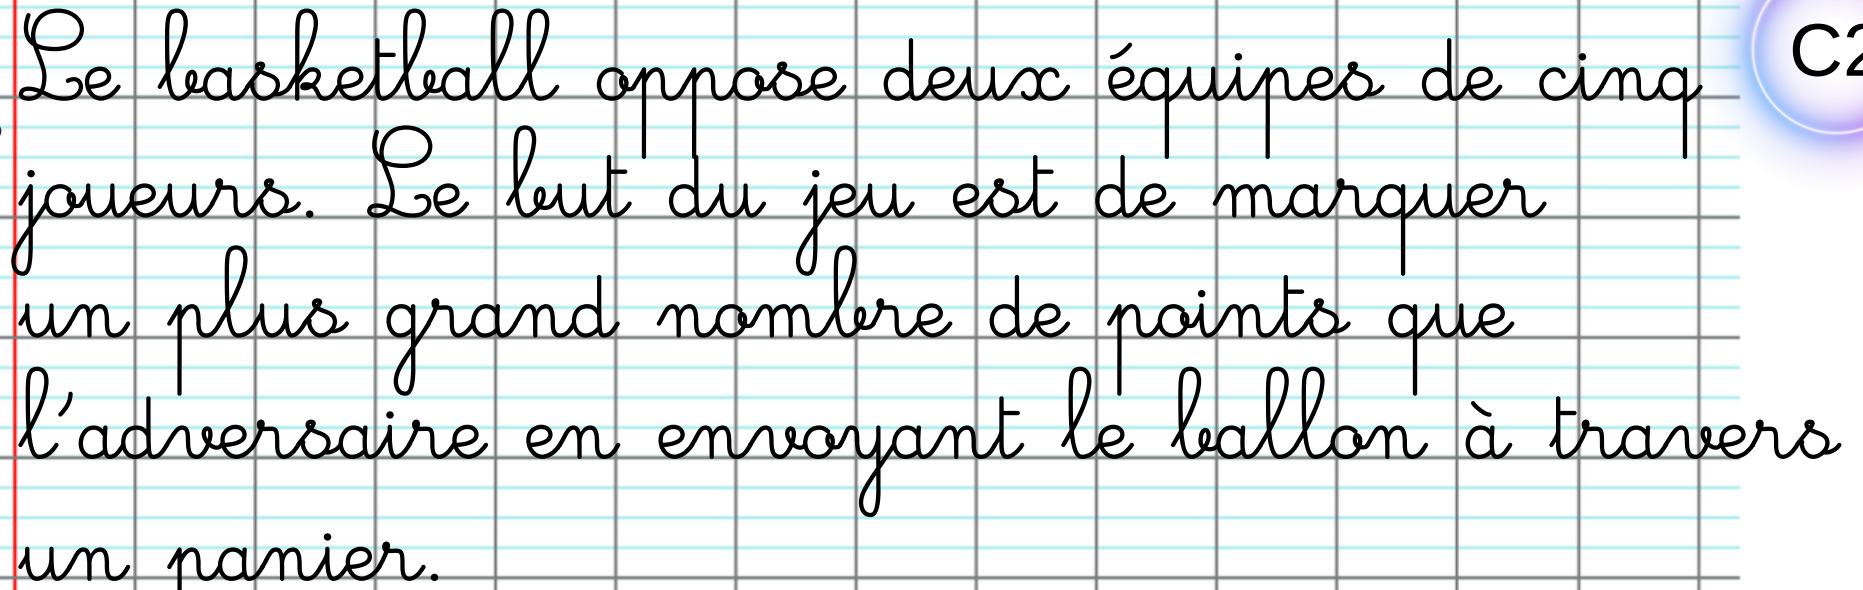 Le basketball oppose deux équipes de cinq
joueurs. Le but du jeu est de marquer
un plus grand nombre de points que
l'adversaire en envoyant le ballon à travers
un panier.
C2